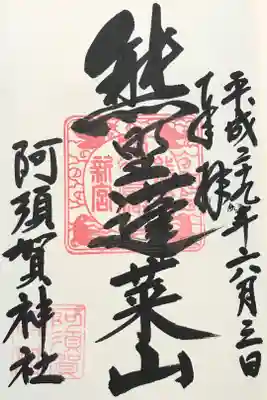 平成二十九年六月三日
奉拝
熊野蓬莱山
新宮
阿須賀神社